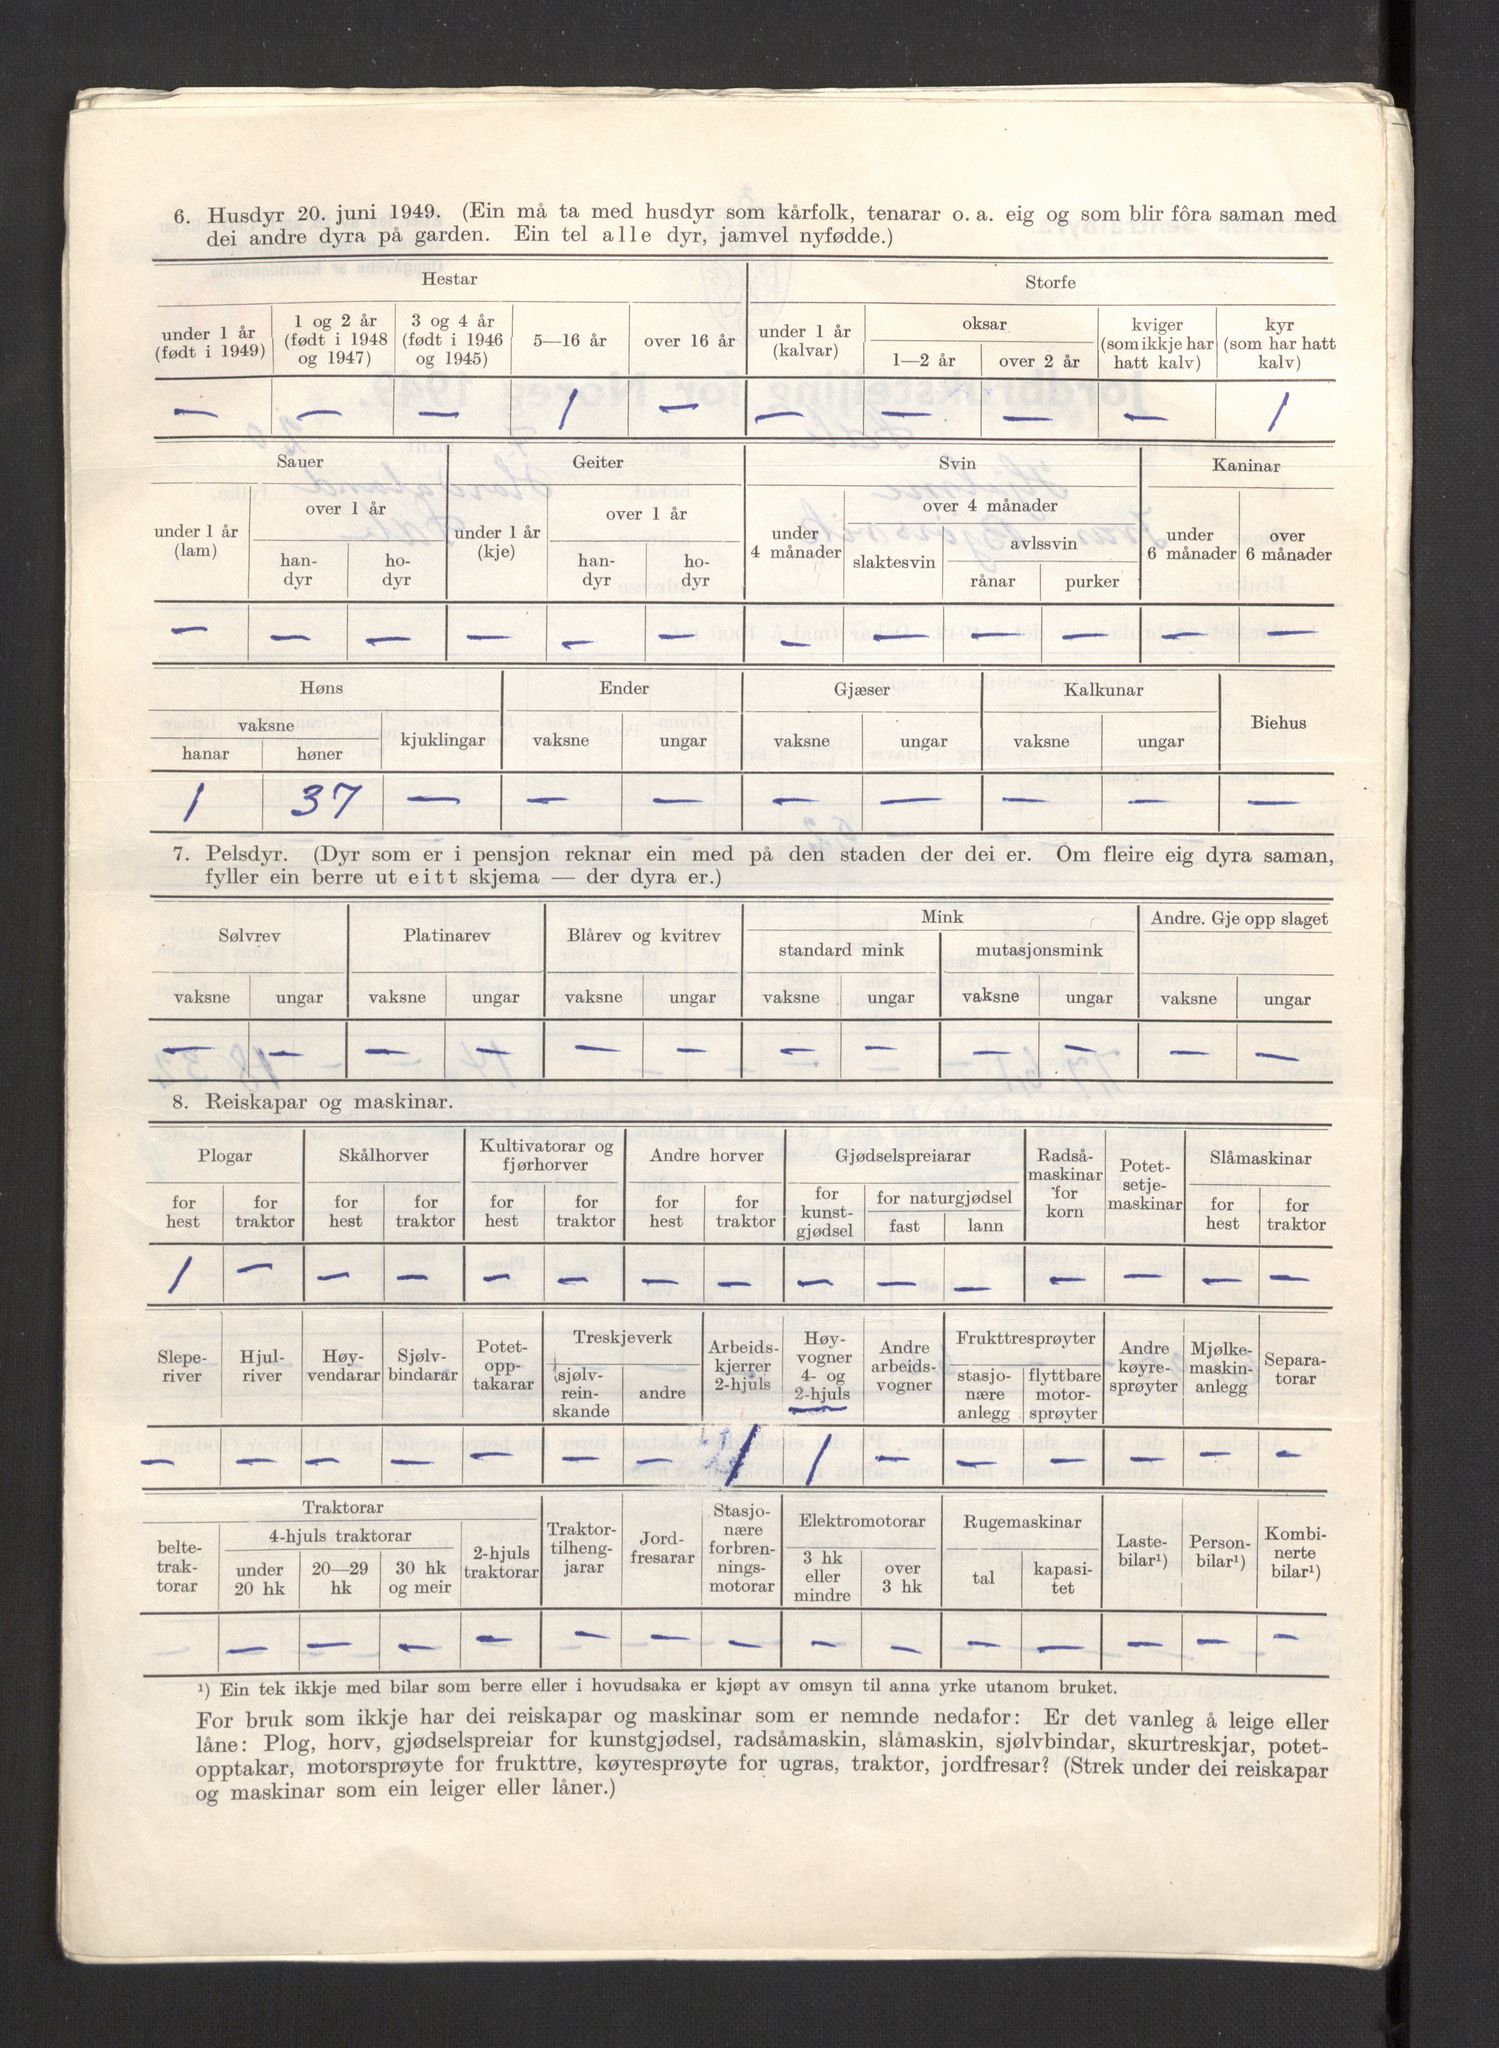 6. Husdyr 20. juni 1949. (Ein må ta med husdyr som kårfolk, tenarar o. a. eig og som blir fôra saman med
dei andre dyra på garden. Ein tel alle dyr, jamvel nyfødde.)
Hestar Storfe
under 1 år (født i 1949) 1 og 2 år (født i 1948 og 1947) 3 og 4 år (født i 1946 og 1945) 5—16 år over 16 år under 1 år (kalvar) oksar 1—2 år over 2 år kviger (som ikkje har hatt kalv) kyr (som har hatt kalv)
— — — 1 — — — — — 1
Sauer Geiter Svin Kaninar
under 1 år (lam) over 1 år han-dyr ho-dyr under 1 år (kje) over 1 år han-dyr ho-dyr under 4 månader over 4 månader slaktesvin avlssvin rånar purker under 6 månader over 6 månader
— — — — — — — — — — — —
Høns Ender Gjæser Kalkunar Biehus
vaksne hanar høner kjuklingar vaksne ungar vaksne ungar vaksne ungar
1 37 — — — — — — — —
7. Pelsdyr. (Dyr som er i pensjon reknar ein med på den staden der dei er. Om fleire eig dyra saman,
fyller ein berre ut eitt skjema — der dyra er.)
Sølvrev Platinarev Blårev og kvitrev Mink Andre. Gje opp slaget
standard mink mutasjonsmink
vaksne ungar vaksne ungar vaksne ungar vaksne ungar vaksne ungar vaksne ungar
— — — — — — — — — — — —
8. Reiskapar og maskinar.
Plogar Skålhorver Kultivatorar og fjørhorver Andre horver Gjødselspreiarar Radså-maskinar for korn Potet-setje-maskinar Slåmaskinar
for hest for traktor for hest for traktor for hest for traktor for hest for traktor for kunst-gjødsel for naturgjødsel fast lann for hest for traktor
1 — — — — — — — — — — — — — —
Slepe-river Hjul-river Høy-vendarar Sjølv-bindarar Potet-opp-takarar Treskjeverk sjølv-rein-skande andre Arbeids-kjerrer 2-hjuls Høy-vogner 4- og 2-hjuls Andre arbeids-vogner Frukttresprøyter stasjo-nære anlegg flyttbare motor-sprøyter Andre køyre-sprøyter Mjølke-maskin-anlegg Separa-torar
— — — — — — — 1 1 — — — — — —
Traktorar Traktor-tilheng-jarar Jord-fresarar Stasjo-nære forbren-nings-motorar Elektromotorar Rugemaskinar Laste-bilar¹) Person-bilar¹) Kombi-nerte bilar¹)
belte-trak-torar 4-hjuls traktorar under 20 hk 20—29 hk 30 hk og meir 2-hjuls traktorar 3 hk eller mindre over 3 hk tal kapasi-tet
— — — — — — — — — — — — — — —
¹) Ein tek ikkje med bilar som berre eller i hovudsaka er kjøpt av omsyn til anna yrke utanom bruket.
For bruk som ikkje har dei reiskapar og maskinar som er nemnde nedafor: Er det vanleg å leige eller
låne: Plog, horv, gjødselspreiar for kunstgjødsel, radsåmaskin, slåmaskin, sjølvbindar, skurtreskjar, potet-
opptakar, motorsprøyte for frukttre, køyresprøyte for ugras, traktor, jordfresar? (Strek under dei reiskapar
og maskinar som ein leiger eller låner.)